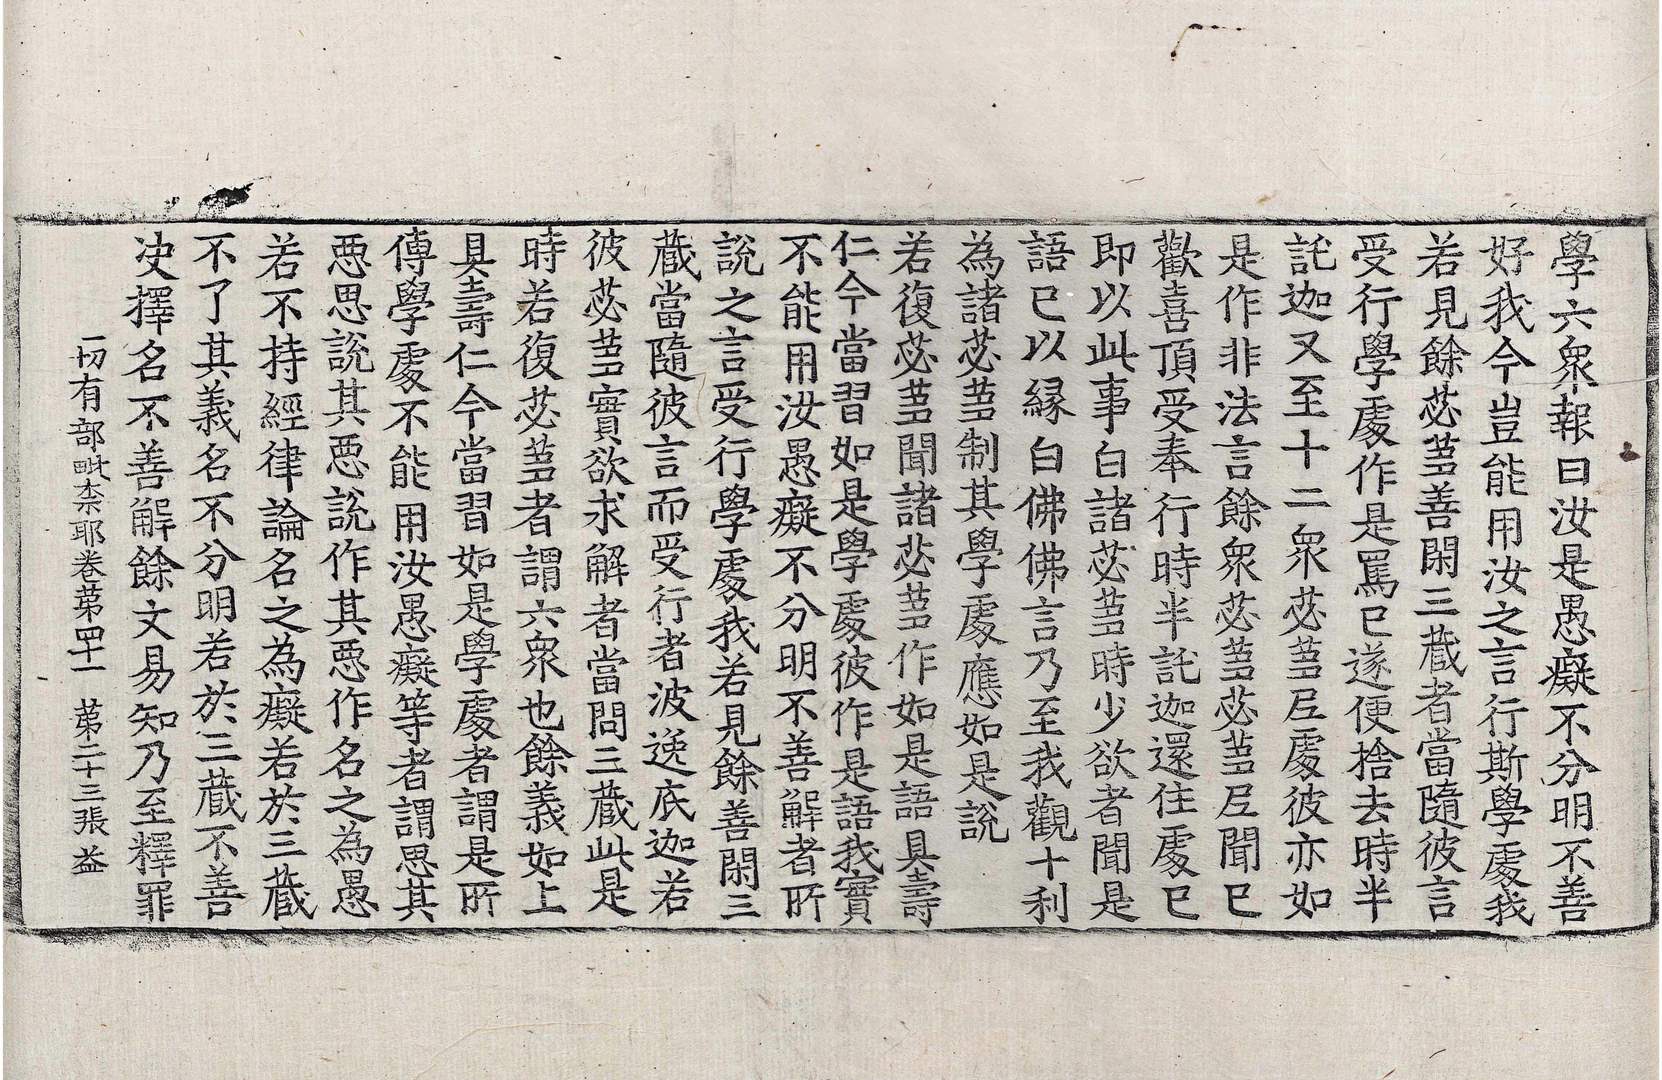 學六衆報曰汝是愚癡不分明不善
好我今豈能用汝之言行斯學處我
若見餘苾蒭善閑三藏者當隨彼言
受行學處作是罵已遂便捨去時半
託迦又至十二衆苾蒭尼處彼亦如
是作非法言餘衆苾蒭苾蒭尼聞已
歡喜頂受奉行時半託迦還住處已
即以此事白諸苾蒭時少欲者聞是
語已以緣白佛佛言乃至我觀十利
為諸苾蒭制其學處應如是說
若復苾蒭聞諸苾蒭作如是語具壽
仁今當習如是學處彼作是語我實
不能用汝愚癡不分明不善解者所
說之言受行學處我若見餘善閑三
藏當隨彼言而受行者波逸底迦若
彼苾蒭實欲求解者當問三藏此是
時若復苾蒭者謂六衆也餘義如上
具壽仁今當習如是學處者謂是所
傳學處不能用汝愚癡等者謂思其
惡思說其惡說作其惡作名之為愚
若不持經律論名之為癡若於三藏
不了其義名不分明若於三藏不善
決擇名不善解餘文易知乃至釋罪
一切有部毗柰耶卷苐四十一 苐二十三張 益